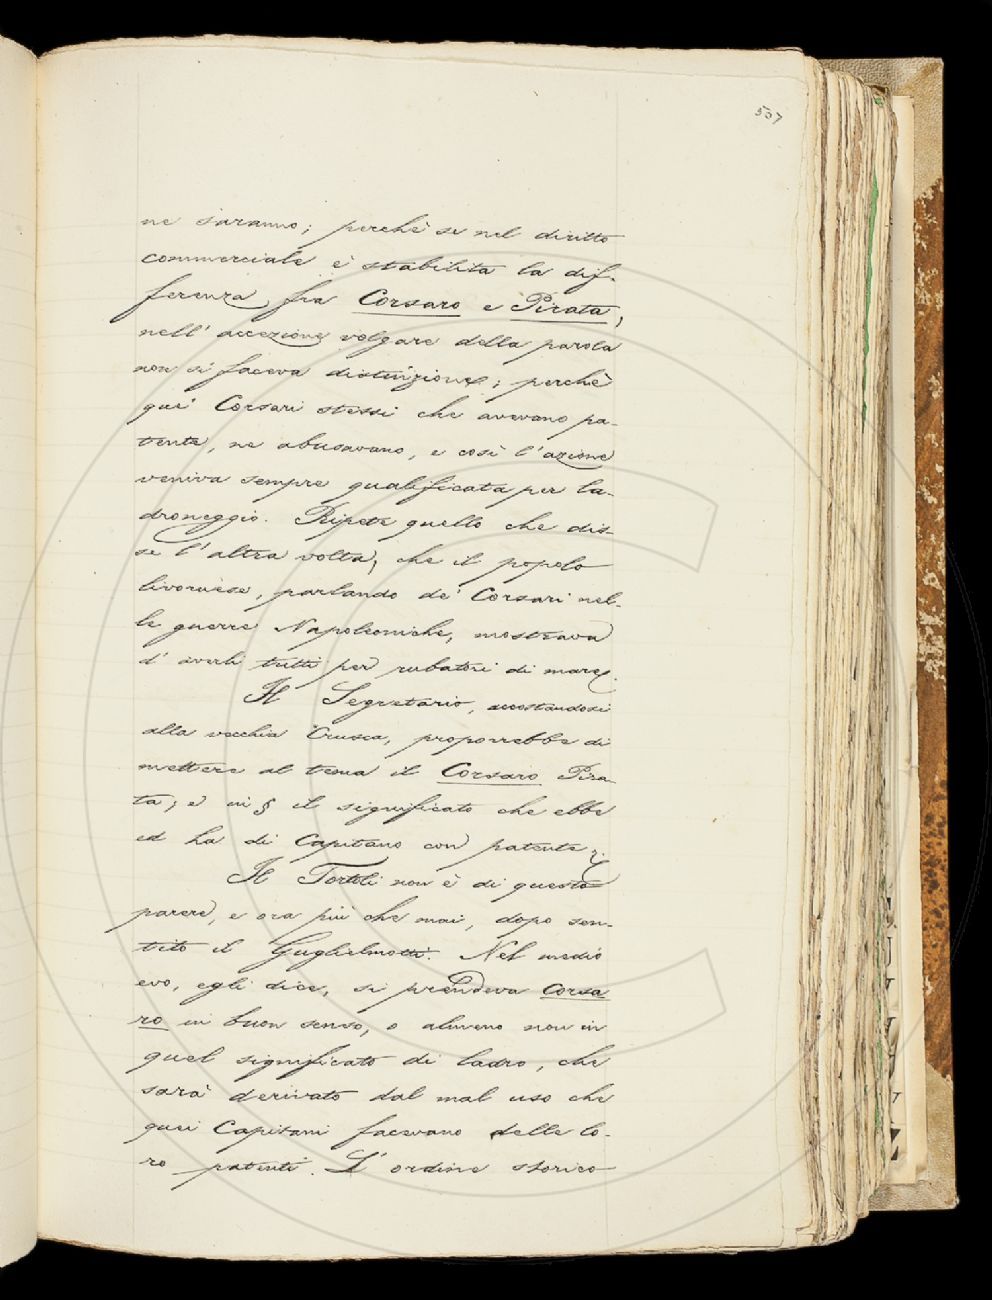 507
ne saranno; perchè se nel diritto
commerciale è stabilita la dif-
ferenza fra Corsaro e Pirata,
nell'accezione volgare della parola
non si faceva distinzione; perchè
quei Corsari stessi che avevano pa-
tente, ne abusavano, e così l'azione
veniva sempre qualificata per la-
droneggio. Ripete quello che dis-
se l'altra volta, che il popolo
livornese, parlando de' Corsari nel-
le guerre Napoleoniche, mostrava
d'averli tutti per rubatori di mare.
Il Segretario, accostandosi
alla vecchia Crusca, proporrebbe di
mettere al tema il Corsaro Pira-
ta; e in § il significato che ebbe
ed ha di Capitano con patente.
Il Tortoli non è di questo
parere, e ora più che mai, dopo sen-
tito il Guglielmotti. Nel medio
evo, egli dice, si prendeva Corsa
ro in buon senso, o almeno non in
quel significato di ladro, che
sarà derivato dal mal uso che
quei Capitani facevano delle lo-
ro patenti. L'ordine storico